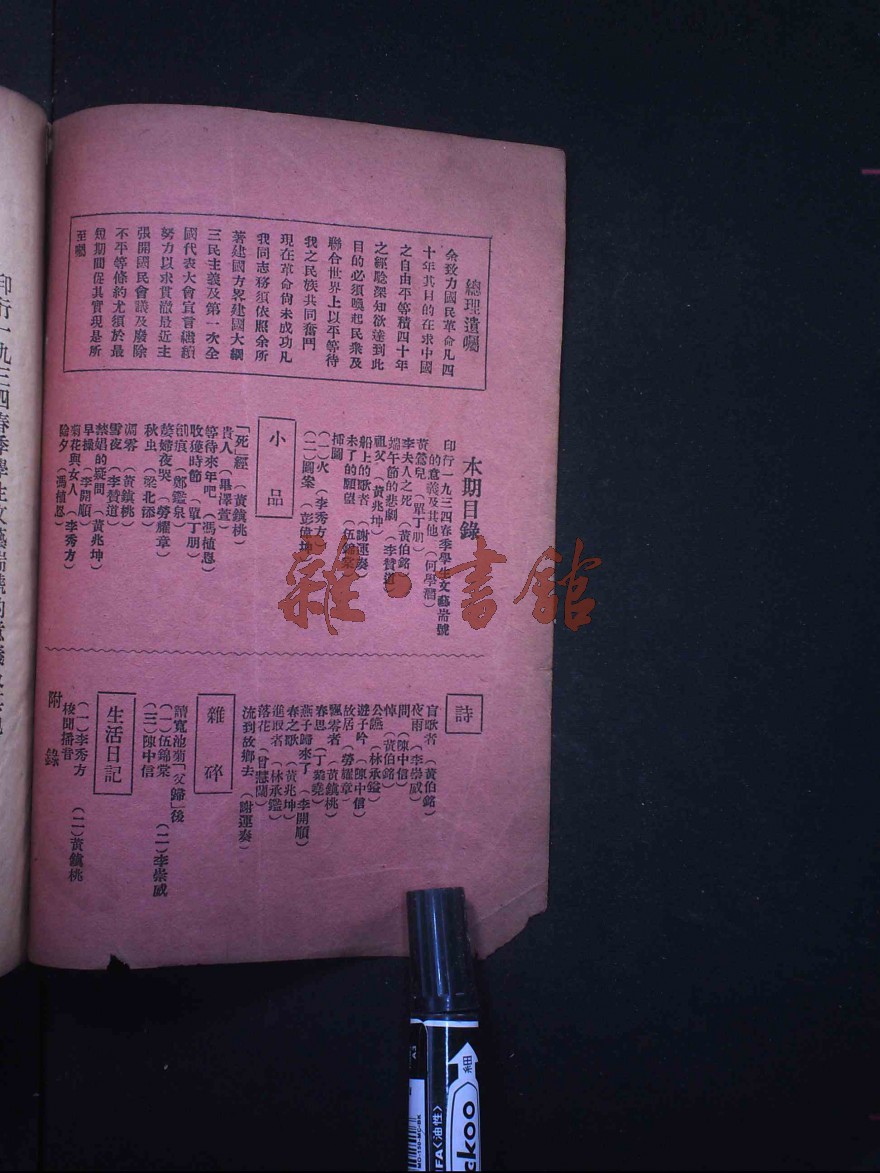 總理遺囑
余致力國民革命凡四
十年其目的在求中國
之自由平等積四十年
之經驗深知欲達到此
目的必須喚起民衆及
聯合世界上以平等待
我之民族共同奮鬥
現在革命尚未成功凡
我同志務須依照余所
著建國方畧建國大綱
三民主義及第一次全
國代表大會宣言繼續
努力以求貫澈最近主
張開國民會議及廢除
不平等條約尤須於最
短期間促其實現是所
至囑
本期目錄
印行一九三四春季學生文藝耑號
的意義及其他(何學濳)
黃鶯兒(單丁朋)
李夫人之死(黃伯銘)
端午節的悲劇(李贊道)
祖父(黃兆坤)
船上的歌者(謝運奏)
未了的願望(伍錦棠)
插圖
(一)火(李秀方)
(二)圖案(彭偉坤)
小品
「死」經(黃鎭桃)
貴人(畢澤萱)
等待來年吧(馮植恩)
收獲時節(單丁朋)
創痕(鄭鑑泉)
嫠婦夜哭(勞耀章)
秋虫(梁北添)
凋零(黃鎭桃)
雪夜(李贊道)
禁娼的疑問(黃兆坤)
早操(李開順)
菊花與女人(李秀方)
除夕(馮植恩)
詩
盲歌者(黃伯銘)
夜雨(李崇威)
問(陳中信)
悼(黃伯銘)
公讌(林承鎰)
遊子吟(陳中信)
故居(勞耀章)
飄零者(黃鎭桃)
春思(丁鷄曉)
燕子歸來了(李開順)
春之歌(黃兆坤)
進取者(林承鎰)
落花(曾慧蘭)
流到故鄉去(謝運奏)
雜碎
讀寬池菊「父歸」後
(一)伍錦棠(二)李崇威
(三)陳中信
生活日記
(一)李秀方(二)黃鎭桃
校聞播音
附錄
印行一九三四春季學生文藝耑號的意義及其他
雜·書館
細
koo
FA〈油性〉